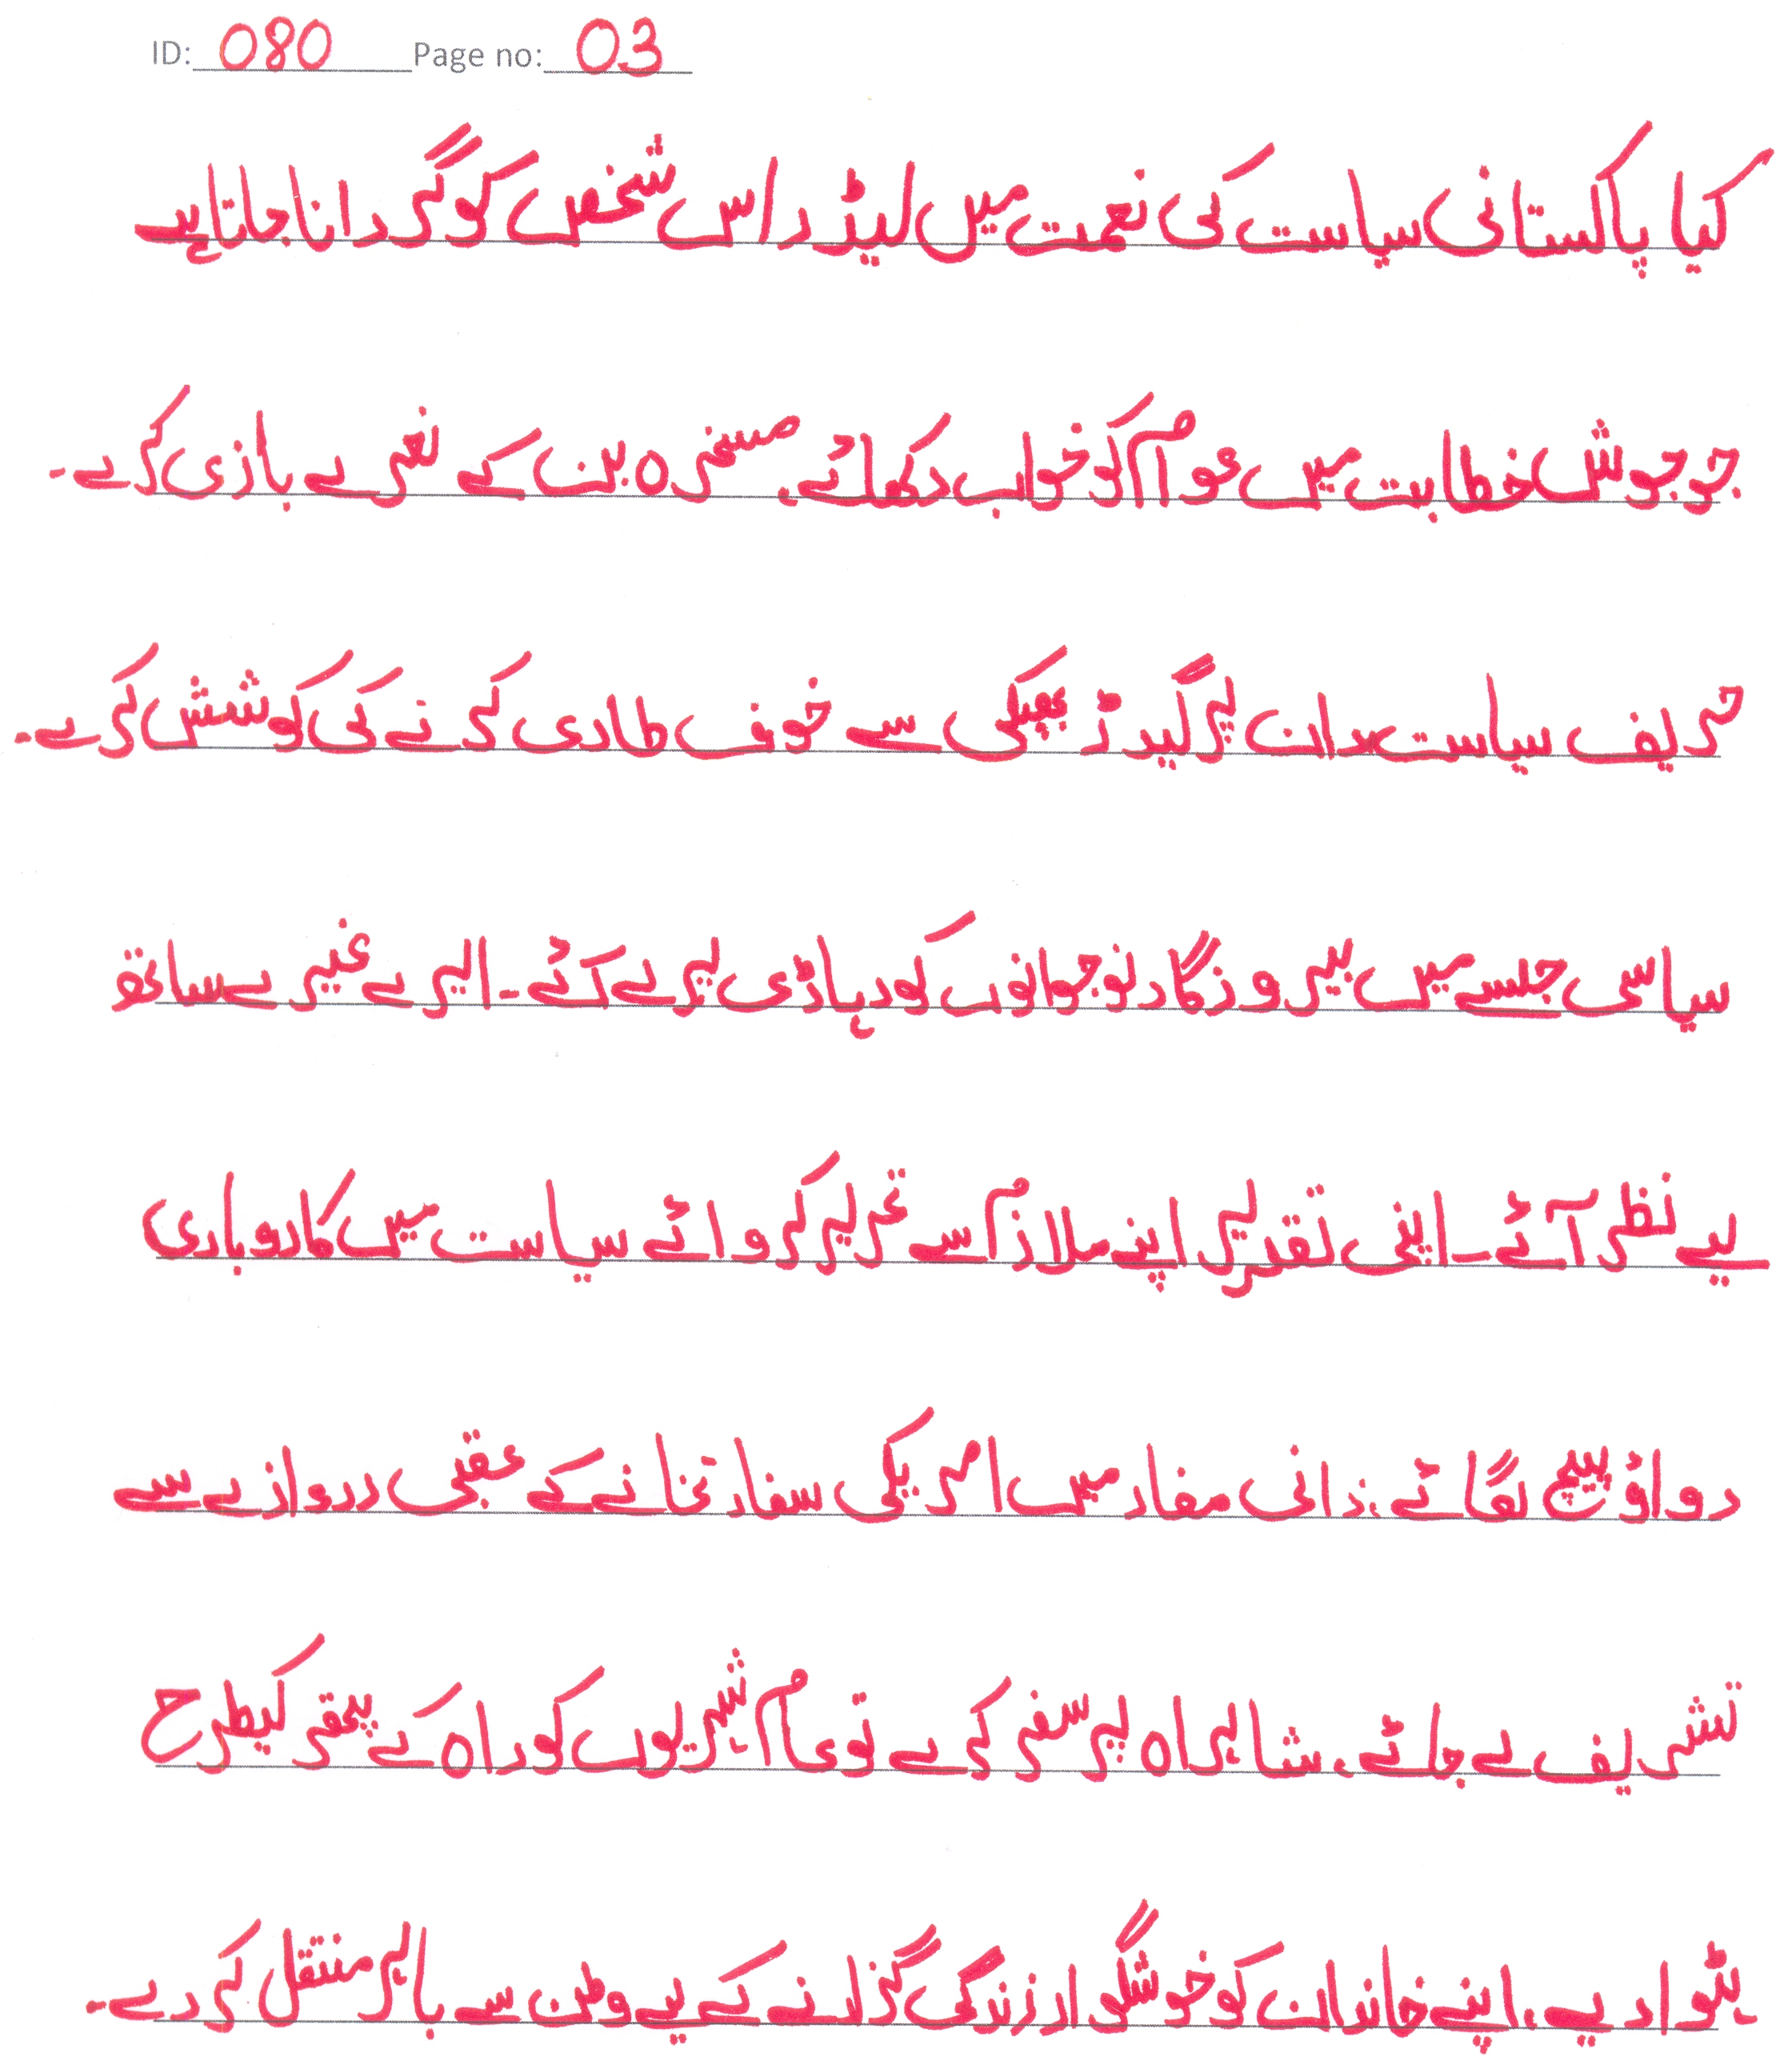 ID: 080 Page no: 03
کیا پاکستانی سیاست کی نعمت میں لیڈر اس شخص کو گردانا جاتا ہے
جو جوش خطابت میں عوام کو خواب دکھائے، مسخرہ بن کے نعرے بازی کرے۔
حریف سیاست دان پر گیدڑ بھپکی سے خوف طاری کرنے کی کوشش کرے۔
سیاسی جلسے میں بیروزگار نوجوانوں کو دہاڑی پر لے آئے۔ ایرے غیرے ساتھ
لیے نظر آئے۔ اپنی تقدیر اپنے ملازم سے تحریر کروائے سیاست میں کاروباری
دواؤ پیچ لگائے، ذاتی مفاد میں امریکی سفارتخانے کے عقبی دروازے سے
تشریف لے جائے، شاہراہ پر سفر کرے تو عام شہریوں کو راہ کے پتھر کیطرح
ہٹوا دیے، اپنے خاندان کو خوشگوار زندگی گزارنے کے لیے وطن سے باہر منتقل کر دے۔